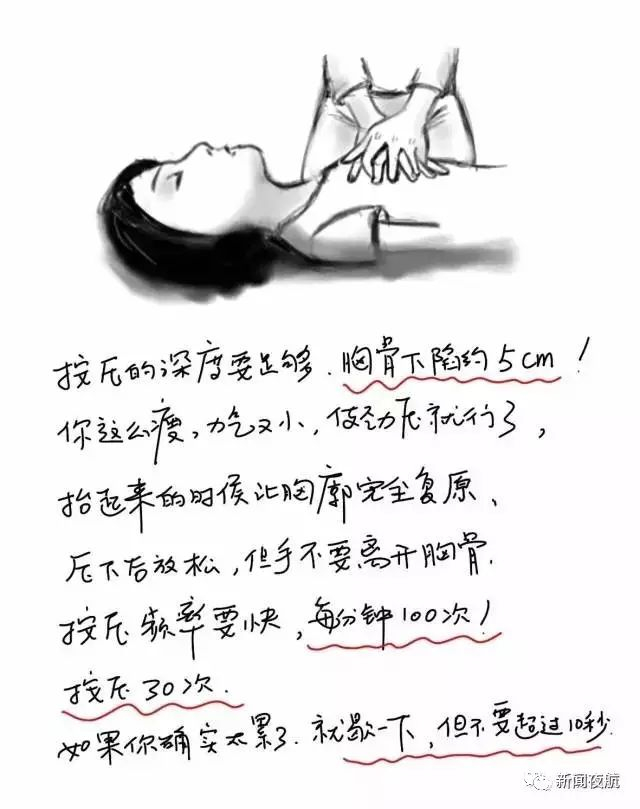 按压的深度要足够、胸骨下陷约5cm！
你这么瘦，力气又小，使劲压就行了，
抬起来的时候让胸廓完全复原、
压下后放松，但手不要离开胸骨.
按压频率要快，每分钟100次！
按压30次.
如果你确实太累了.就歇一下，但不要超过10秒.
新闻夜航